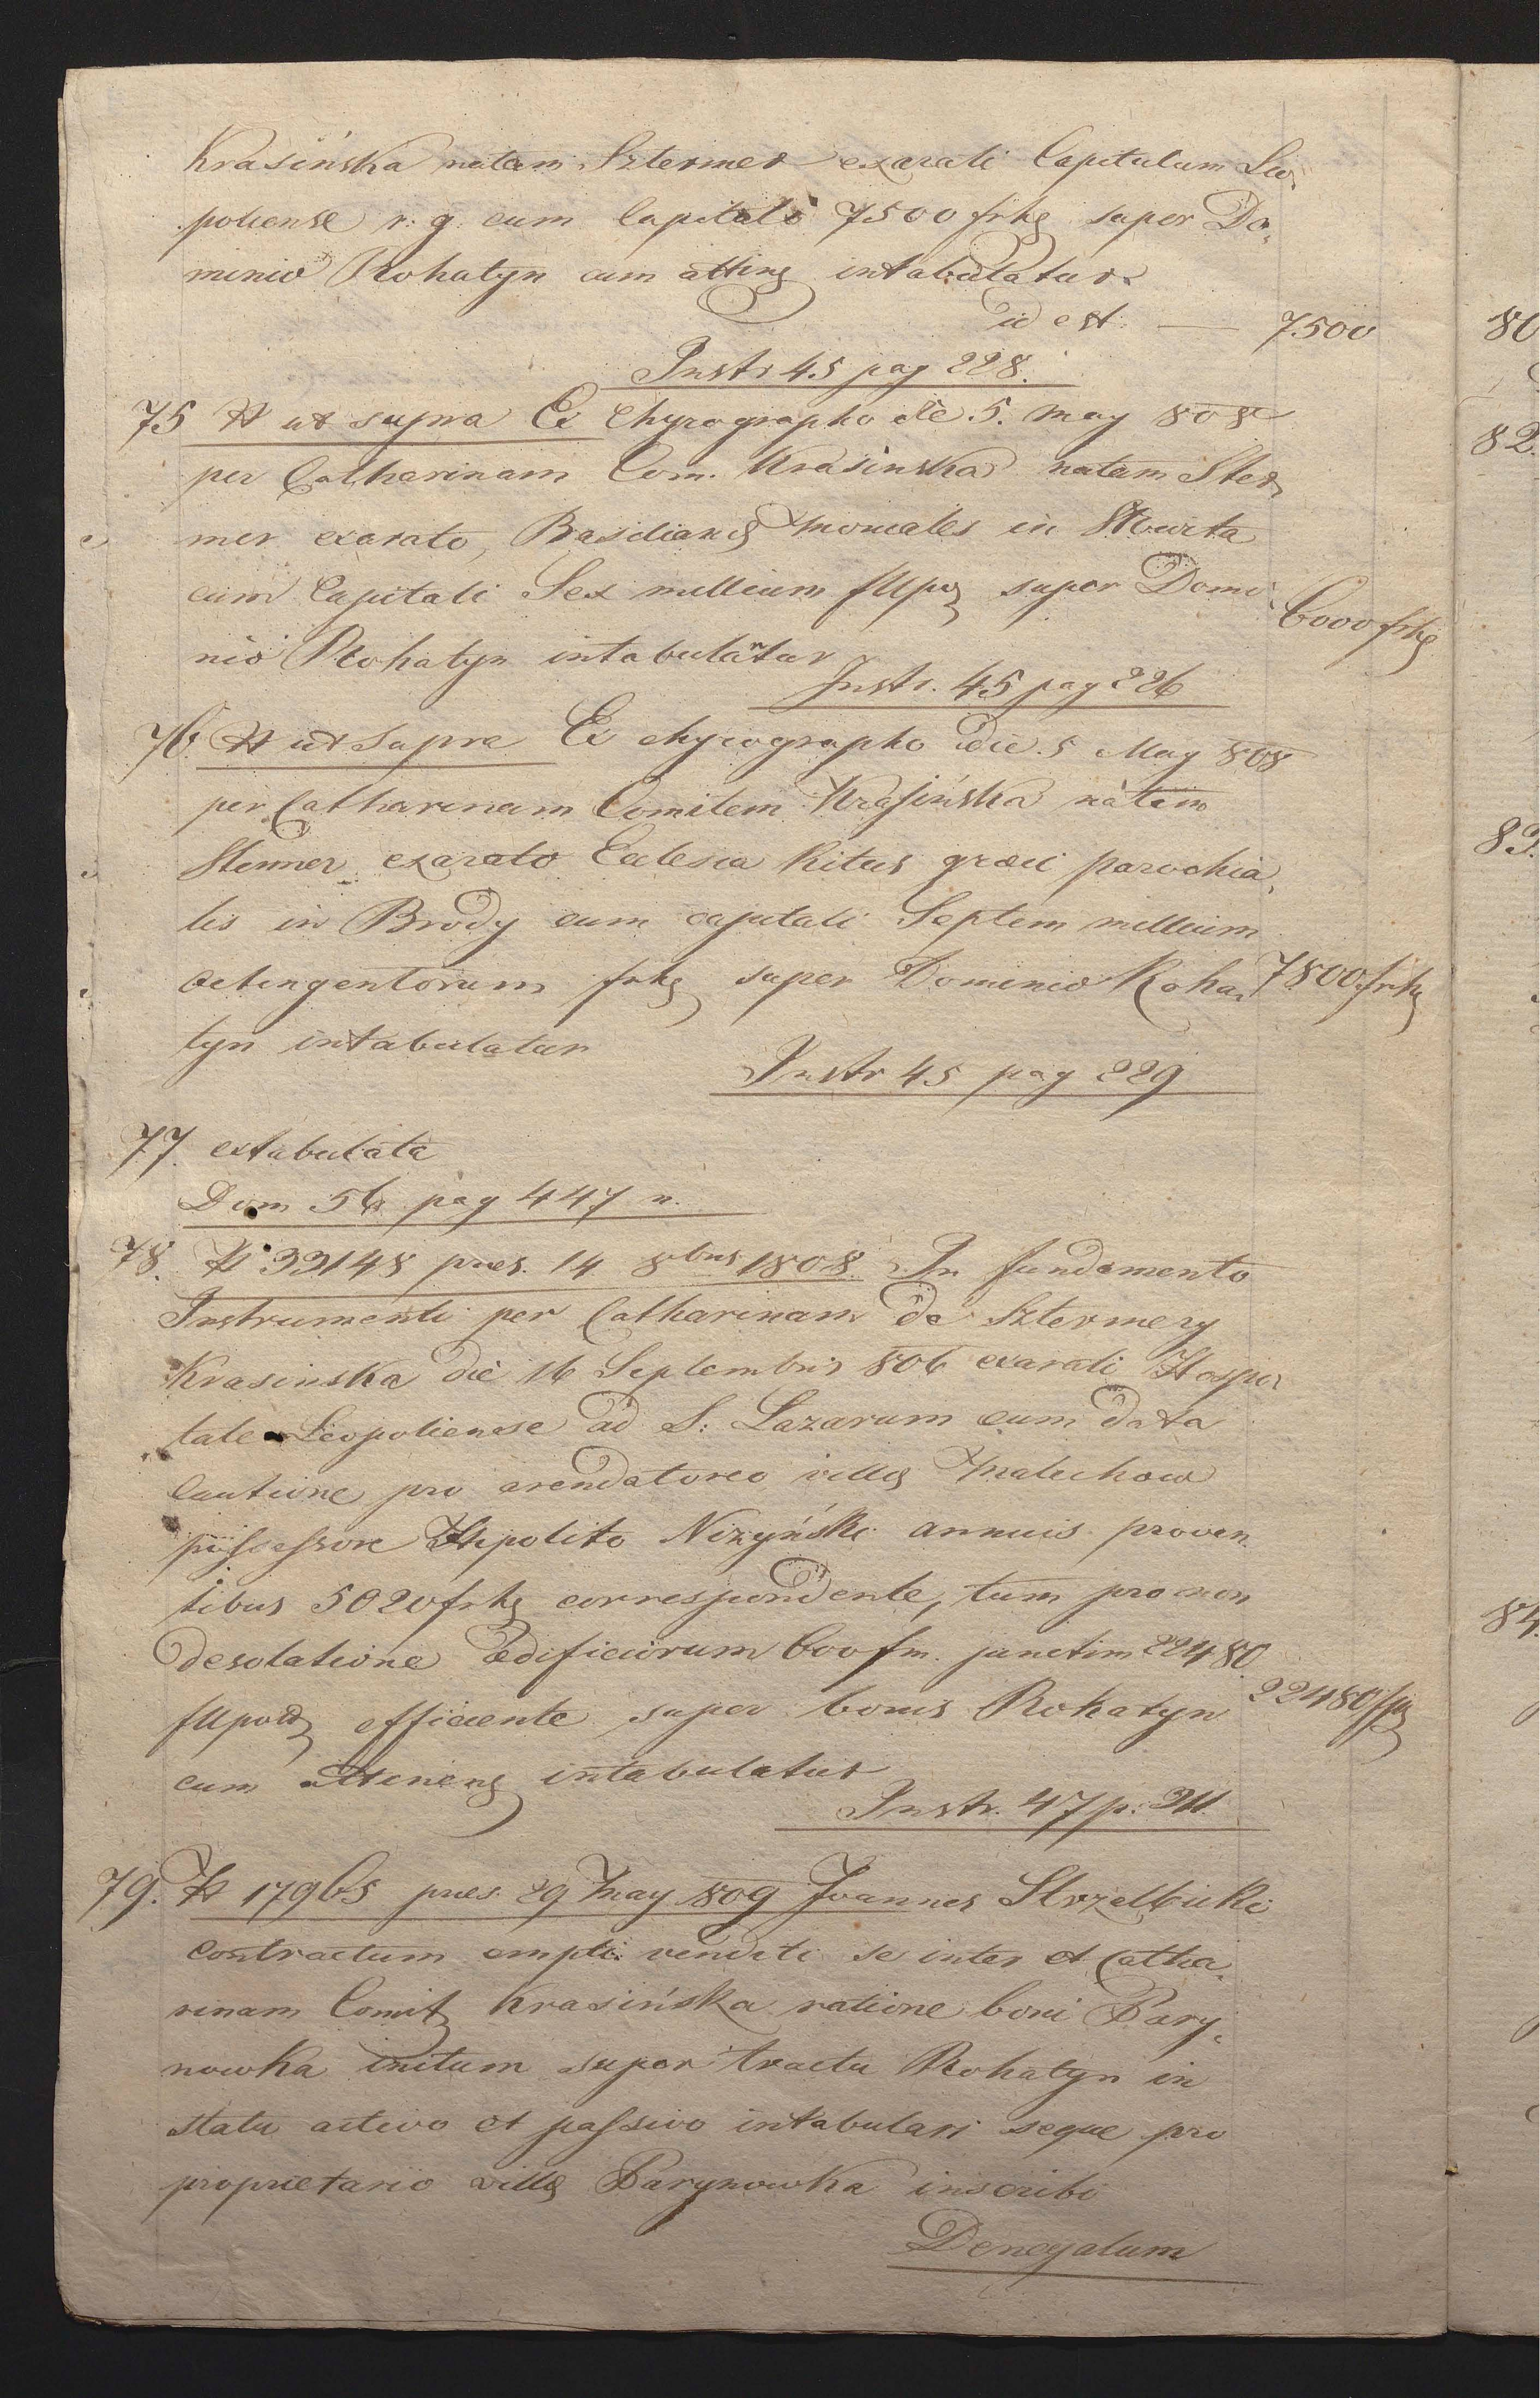 Krasińska natam Sztermer exarati Capitulum Leo,
poliense r: g. cum Capitali 7500 frhg super Do,
minio Rohatyn cum atting intabulatur
id est. — 7500
Instr 45 pag 228.
75 N ut supra Ex Chyrographo die 5. may 808
per Catharinam Com. Krasinska natam Ster,
mer exarato, Basiliang moniales in Słowita
cum Capitali Sex millium fllpo super Domi
6000 frhg
nio Rohatyn intabulantur
Instr. 45 pag 226
76. N ut supra Ex chyrographo die 5 May 808
per Catharinam Comitem Krasińska natam
Stermer exarato Eclesia Ritus græci parochia,
lis in Brody cum capitali Septem millium
octingentorum frhg super Dominio Roha, 7800 frhg
tyn intabulatur
Instr 45 pag 229
77. extabulata
Dom 56 pag 447 n.
78. N 33148 pres. 14 8bris 1808. In fundamento
Instrumenti per Catharinam de Sztermery
Krasinska die 16 Septembris 806 exarati Hospi,
tale Leopoliense ad S: Lazarum cum data
Cautione pro arendatoreo villg Malechow
possessore Hipolito Nizyński annuis proven
tibus 5020 frhg correspondente, tum pro non
desolatione ædificiorum 600 fm. junctim 22480
fllpold efficiente super bonis Rohatyn 22480 fp
cum Attineng intabulatur
Instr. 47 p: 311
79. N 17965 pres. 29 May 809 Joannes Strzelbicki
contractum empti venditi se inter et Catha,
rinam Comit Krasińska ratione boni Bary,
nowka initum super tractu Rohatyn in
statu activo et passivo intabulari seque pro
proprietario villg Barynowka inscribi
Denegatum
80
82.
83.
84.